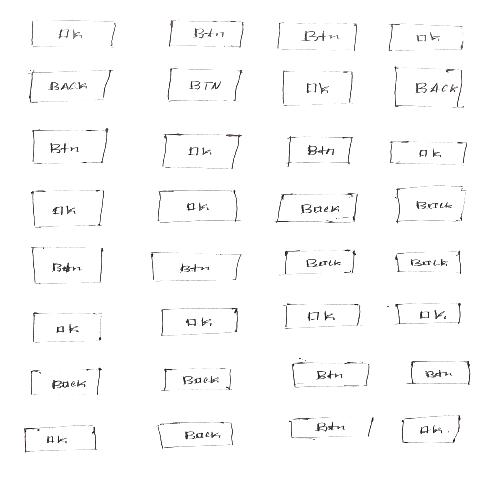 Ok Btn Btn Ok
BACK BTN Ok BACK
Btn Ok Btn Ok
Ok Ok Back Back
Btn Btn Back Back
Ok Ok. Ok Ok.
Back Back Btn Btn
Ok Back Btn Ok.